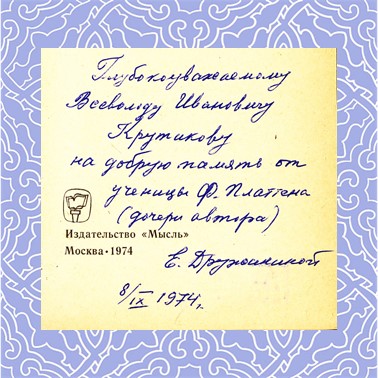 Глубокоуважаемому
Всеволоду Ивановичу
Крутикову
на добрую память от
ученицы Ф. Платтена
(дочери автора)
Издательство «Мысль»
Москва · 1974
Е. Дружининой
8/IX 1974,